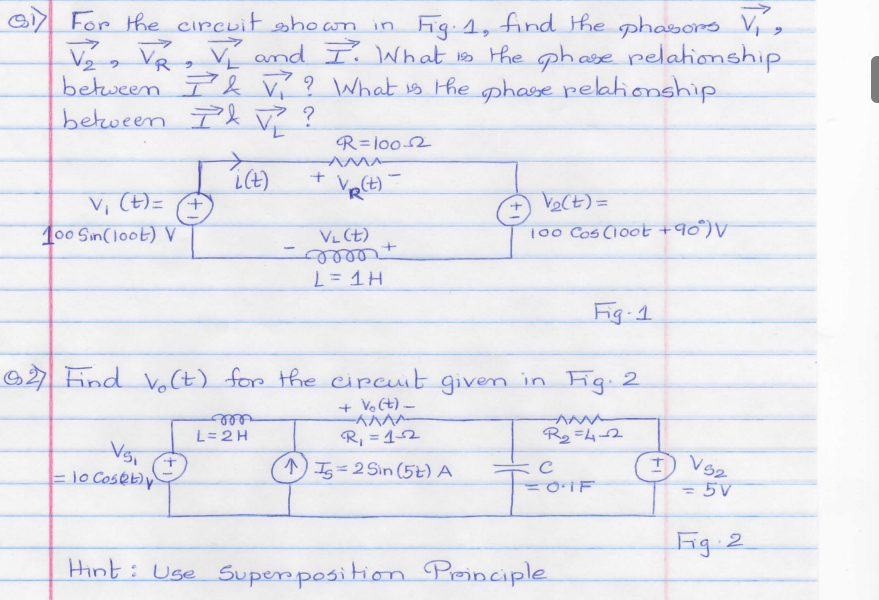 Q1) For the circuit shown in Fig. 1, find the phasors V₁→,
V₂→, V_R→, V_L→ and I→. What is the phase relationship
between I→ & V₁→? What is the phase relationship
between I→ & V_L→?
R=100Ω
i(t)
+ V_R(t) −
V₁(t)=
100 Sin(100t) V
+
−
+
−
V₂(t)=
100 Cos(100t +90°)V
− V_L(t) +
L = 1H
Fig. 1
Q2) Find V₀(t) for the circuit given in Fig. 2
+ V₀(t) −
L=2H
R₁=1Ω
R₂=4Ω
V_S₁
= 10 Cos(2t) V
+
−
I_S = 2 Sin(5t) A
C
= 0.1F
+
−
V_S2
= 5V
Fig. 2
Hint: Use Superposition Principle